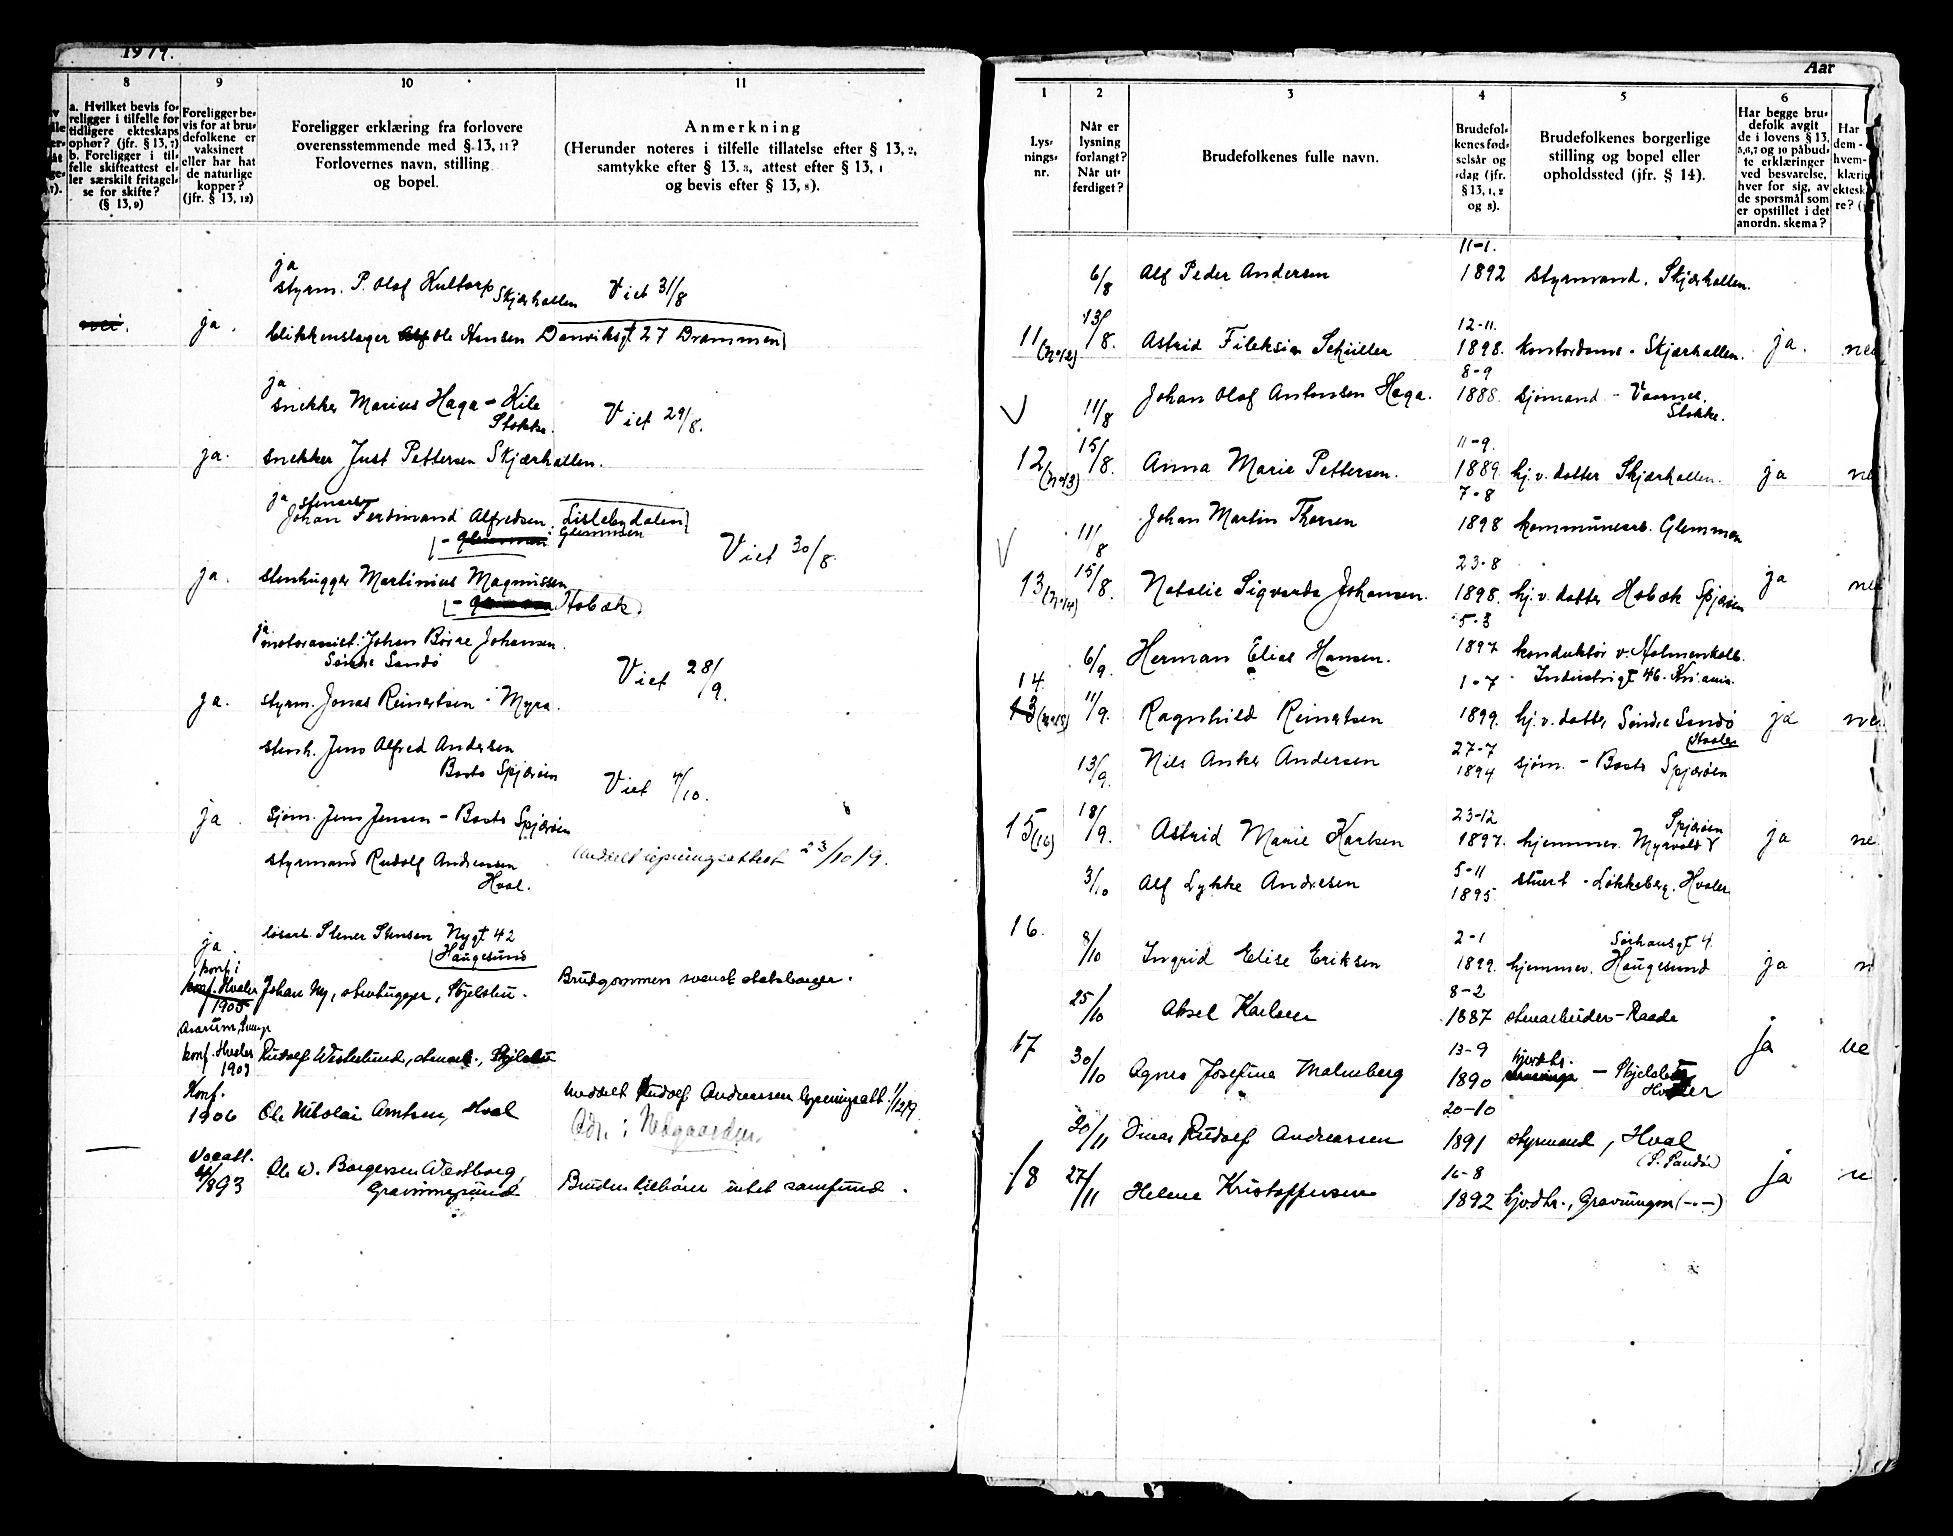 1919.
8
9
10
11
a. Hvilket bevis fo-
religger i tilfelle for
tidligere ekteskaps
ophør? (jfr. § 13, 7)
b. Foreligger i til-
felle skifteattest el-
ler særskilt fritagel-
se for skifte?
(§ 13, 9)
Foreligger be-
vis for at bru-
defolkene er
vaksinert
eller har hat
de naturlige
kopper?
(jfr. § 13, 12)
Foreligger erklæring fra forlovere
overensstemmende med § 13, 11?
Forlovernes navn, stilling
og bopel.
Anmerkning
(Herunder noteres i tilfelle tillatelse efter § 13, 2,
samtykke efter § 13, 3, attest efter § 13, 1
og bevis efter § 13, 8).
ja
styrm. P. Olaf Kultorp Skjærhallen
Viet 31/8
nei.
ja.
blikkenslager Alf Ole Hansen Danviksgt 27 Drammen
ja
snekker Marius Haga - Kile
Stokke.
Viet 29/8.
ja.
snekker Just Pettersen Skjærhallen.
ja stenarb
Johan Ferdinand Alfredsen, Lislebydalen
Glemmen
Viet 30/8.
ja.
stenhugger Martinius Magnussen
Hobæk
ja
Johan Børre Johansen.
Søndre Sandø
Viet 28/9.
ja.
styrm. Jonas Reinertsen - Myra.
stenh. Jens Alfred Andersen
Basto Spjærøen
Viet 4/10.
ja
sjøm. Jens Jensen - Basto Spjærøen
styrmand Rudolf Andreassen
Hval.
Uddelt lysningsattest 23/10 19.
ja
løsarb. Stener Stensen Nygt 42
Haugesund
konf. i
konf. Hvaler
1905
Johan Ny, stenhugger, Skjelsbu.
Brudgommen svensk statsborger.
Asarum,
konf. Hvaler
1903
Rudolf Westerlund, stenarb., Skjelsbu
Konf.
1906
Ole Nikolai Arntsen, Hval
Uddelt Rudolf Andreassen lysningsatt. 1/12 19.
Adr.: Nedgaarden.
Vacatt.
1893
Ole W. Borgersen Westborg,
Gravningsund
Bruden tilhører intet samfund.
Aar
1
2
3
4
5
6
Lys-
nings-
nr.
Når er
lysning
forlangt?
Når ut-
ferdiget?
Brudefolkenes fulle navn.
Brudefol-
kenes fød-
selsår og
-dag (jfr.
§ 13, 1, 2
og 3).
Brudefolkenes borgerlige
stilling og bopel eller
opholdssted (jfr. § 14).
Har begge bru-
defolk avgit
de i lovens § 13,
5,6,7 og 10 påbud-
te erklæringer
ved besvarelse,
hver for sig, av
de spørsmål som
er opstillet i det
anordn. skema?
Har
dem-
hvem-
klærin
ektesk
re? (
11-1.
6/8
Alf Peder Andersen
1892
styrmand. Skjærhallen.
11 (nr 12)
13/8.
Astrid Fileksia Schüller
12-11.
1898.
kontordame - Skjærhallen.
ja.
nei
V
11/8
Johan Olaf Antonsen Haga.
8-9
1888.
sjømand - Vaarnes,
Stokke.
12 (nr 13)
15/8.
Anna Marie Pettersen.
11-9.
1889.
hj. v. datter Skjærhallen.
ja
ne
V
11/8
Johan Martin Thorsen
7-8
1898
kommunearb. Glemmen
13 (nr 14)
15/8.
Natalie Sigvarda Johansen.
23-8
1898.
hj. v. datter Hobæk Spjærøen
ja
nei
6/9.
Herman Elias Hansen.
5-3
1897
konduktør v. Holmenkolb.
Industrigt 46. Kr.ania.
14
13 (nr 15)
11/9.
Ragnhild Reinertsen
1-7
1899.
hj. v. datter Søndre Sandø
Hvaler
ja
nei
13/9.
Nils Anker Andersen
27-7
1894
sjøm. - Basto Spjærøen
15 (16)
18/9.
Astrid Marie Karlsen
23-12
1897.
hjemmev. Myrvold
Spjærøen
ja
ne
3/10
Alf Lykke Andresen
5-11
1895
stuert - Løkkeberg. Hvaler
16.
8/10
Ingrid Elise Eriksen
2-1
1899.
hjemmev. Haugesund
Sørhausgt 4.
ja
n
25/10
Aksel Karlsen
8-2
1887
stenarbeider - Raade
17
30/10
Agnes Josefine Malmberg
13-9
1890
hjvdtr. - Skjelsbu
Hvaler
ja
ne
20/11
Einar Rudolf Andreassen
20-10
1891
styrmand, Hval
(S. Sandø)
18
27/11
Helene Kristoffersen
16-8
1892
hjvdtr., Gravningen (-"-)
ja
ne